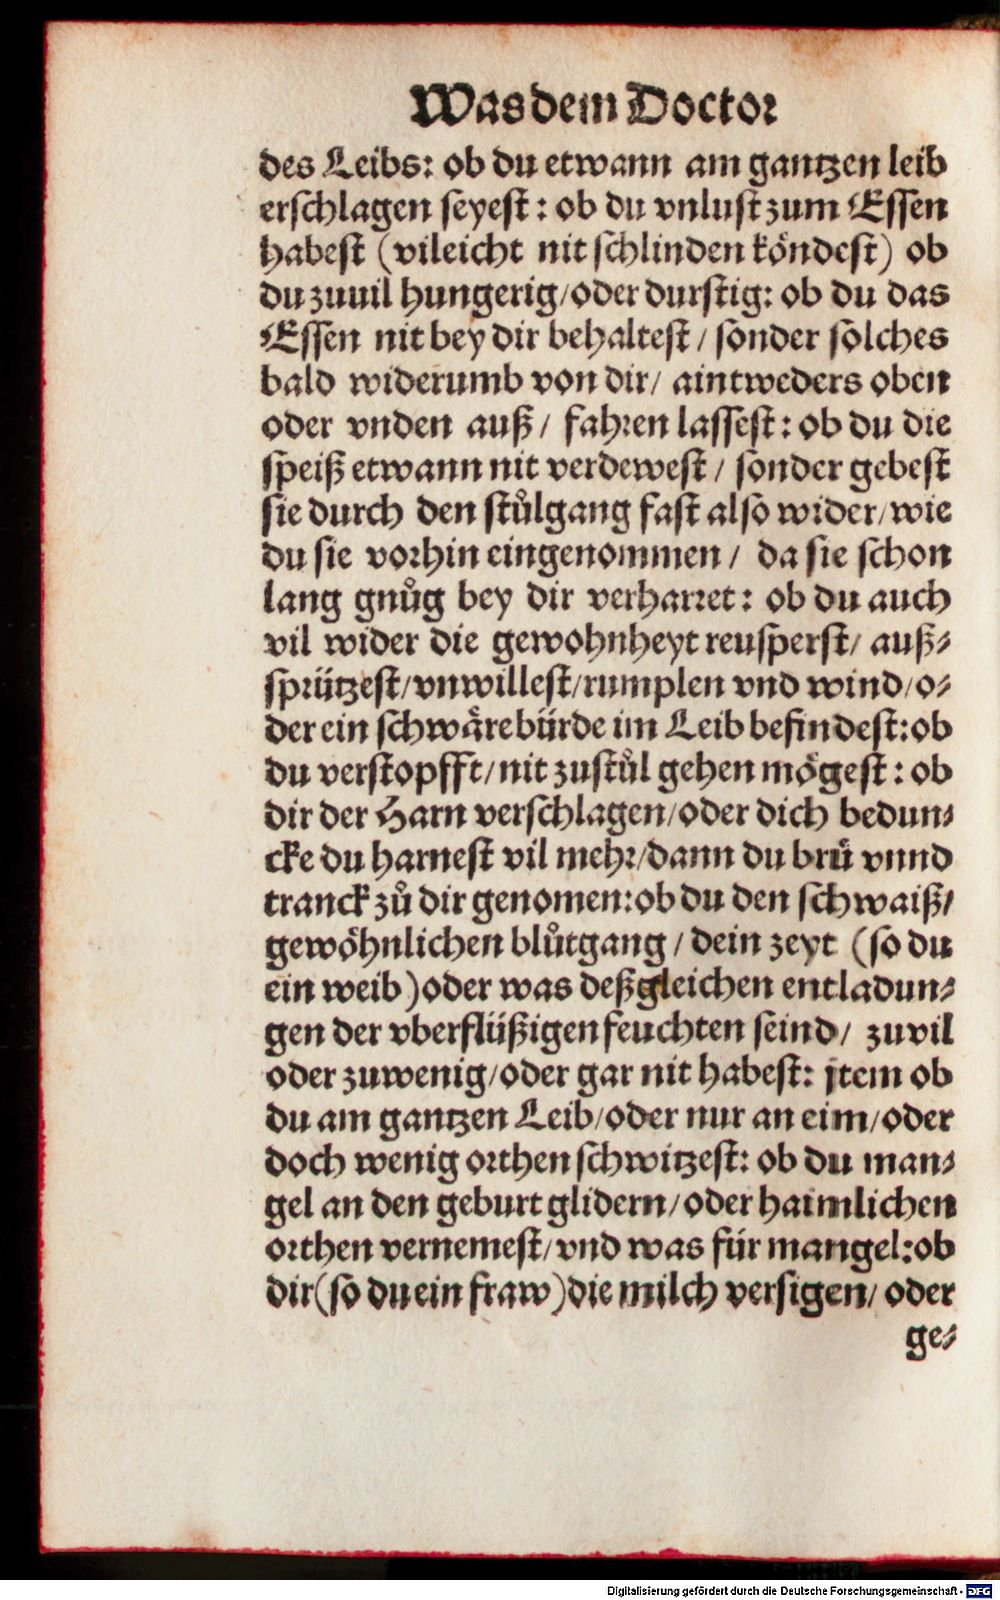 Was dem Doctor
des Leibs: ob du etwann am gantzen leib
erschlagen seyest: ob du vnlust zum Essen
habest (vileicht nit schlinden köndest) ob
du zuuil hungerig/oder durstig: ob du das
Essen nit bey dir behaltest/ sonder solches
bald widerumb von dir/ aintweders oben
oder vnden auß/ fahren lassest: ob du die
speiß etwann nit verdewest/ sonder gebest
sie durch den stůlgang fast also wider/wie
du sie vorhin eingenommen/ da sie schon
lang gnůg bey dir verharret: ob du auch
vil wider die gewohnheyt reusperst/ auß-
sprützest/vnwillest/rumplen vnd wind/o-
der ein schwåre bürde im Leib befindest: ob
du verstopfft/nit zu stůl gehen mögest: ob
dir der Harn verschlagen/oder dich bedun-
cke du harnest vil mehr/dann du brü vnnd
tranck zů dir genomen: ob du den schwaiß/
gewöhnlichen blůtgang/ dein zeyt (so du
ein weib) oder was deßgleichen entladun-
gen der vberflüßigen feuchten seind/ zuvil
oder zuwenig/oder gar nit habest: jtem ob
du am gantzen Leib/oder nur an eim/oder
doch wenig orthen schwitzest: ob du man-
gel an den geburt glidern/oder haimlichen
orthen vernemest/vnd was für mangel: ob
dir (so du ein fraw) die milch versigen/ oder
ge-
Digitalisierung gefördert durch die Deutsche Forschungsgemeinschaft - DFG